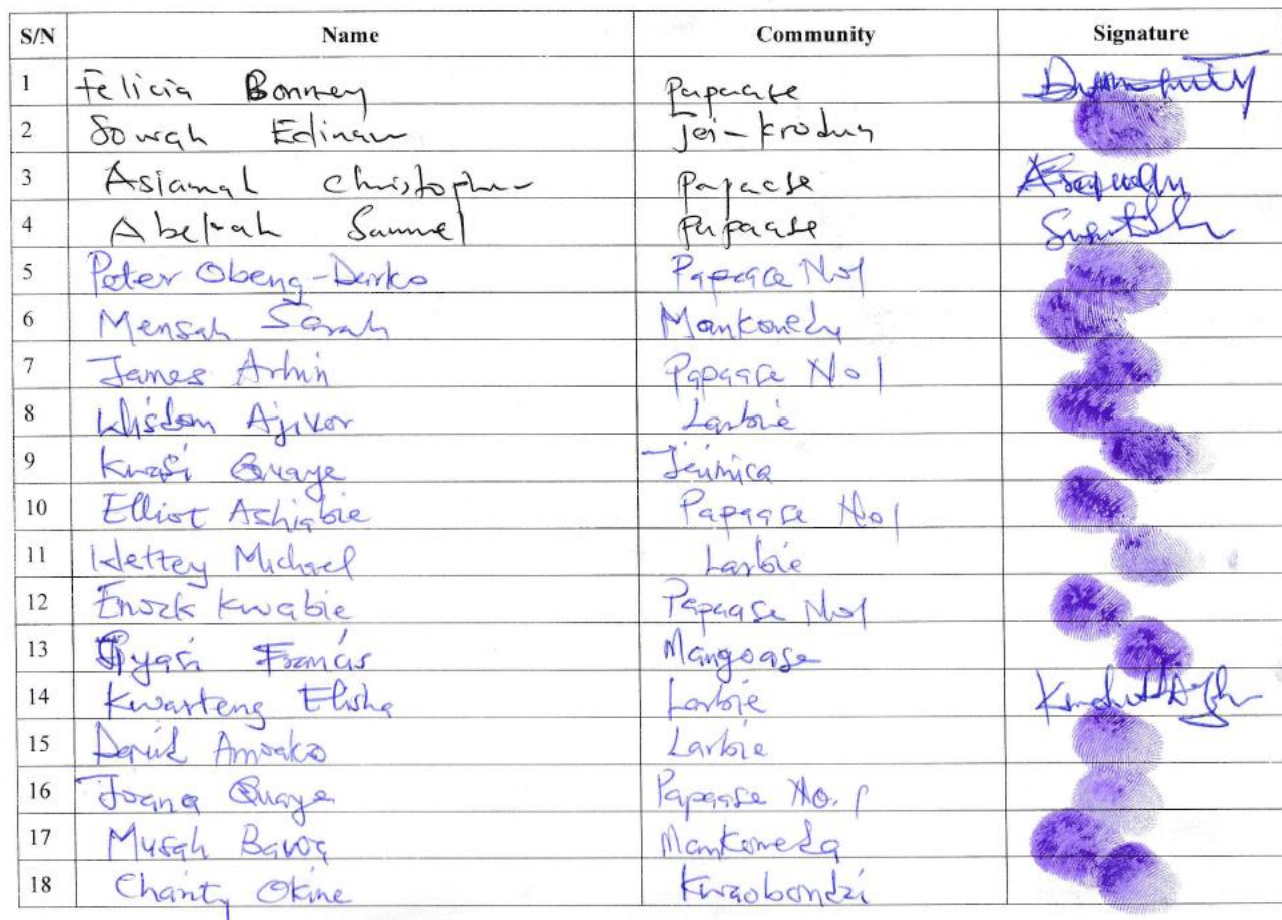 S/N Name Community Signature
1 Felicia Bonney Papaase
2 Sowah Edinam Jei-Krodua
3 Asiamah Christopher Papaase
4 Samuel Papaase
5 Peter Obeng-Darko Papaase No1
6 Mensah Sarah Mankoneda
7 James Arhin Papaase No 1
8 Wisdom Ajivor Larbie
9 Kwasi Quaye
10 Elliot Ashiabie Papaase No 1
11 Wettey Michael Larbie
12 Enock Kwabie Papaase No1
13 Gyasi Francis Mangoase
14 Kwarteng Elisha Larbie
15 David Amoako Larbie
16 Joana Quaye Papaase No. 1
17 Musah Bawa Mankoneda
18 Charity Okine Kwaobondzi